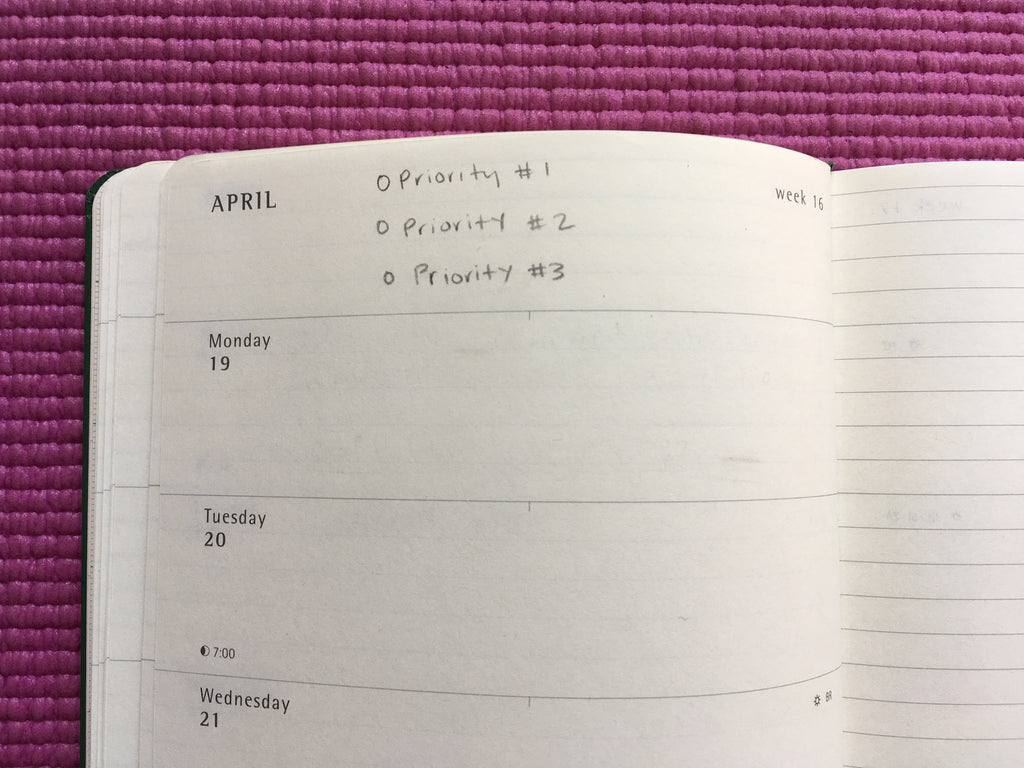 APRIL
O Priority #1
week 16
O Priority #2
O Priority #3
Monday
19
Tuesday
20
7:00
Wednesday
21
BR